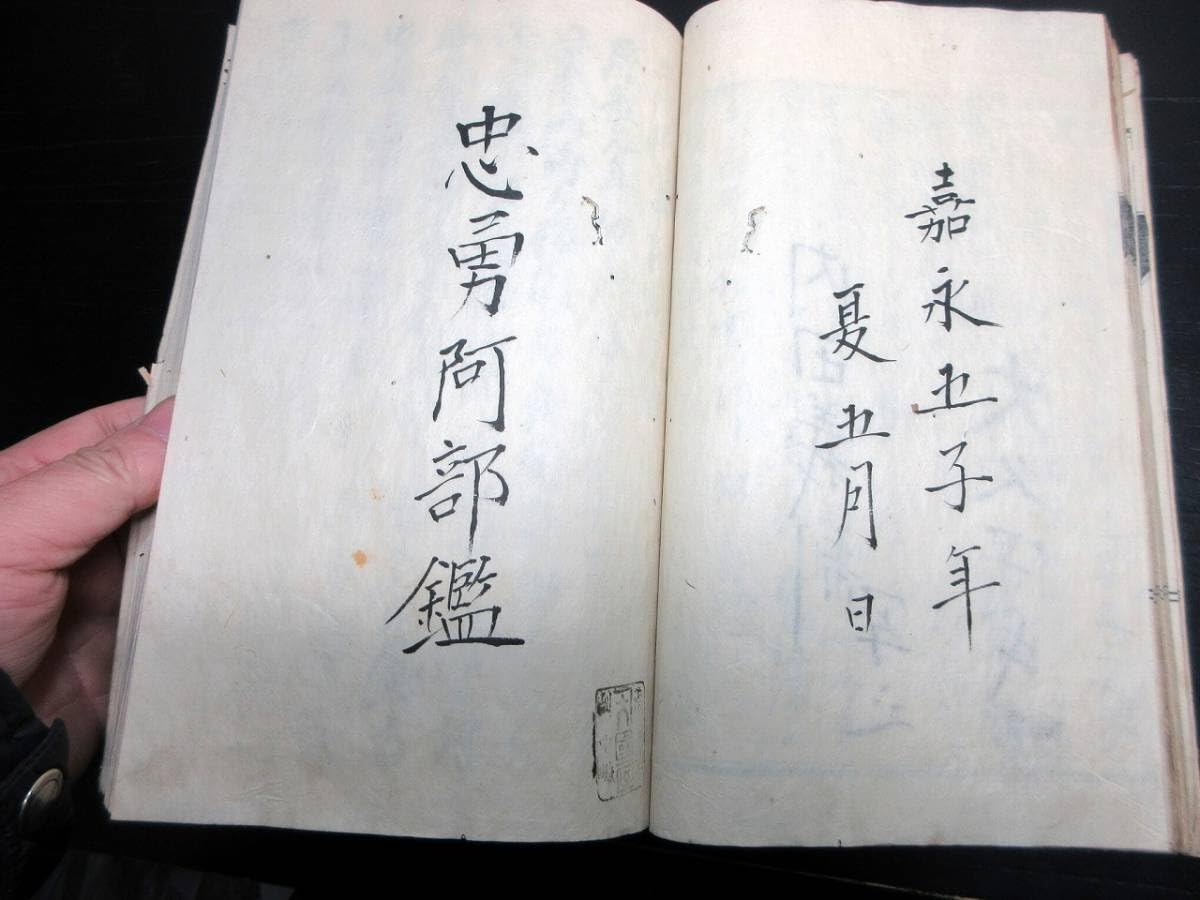 嘉永五子年
夏五月日
忠勇阿部鑑